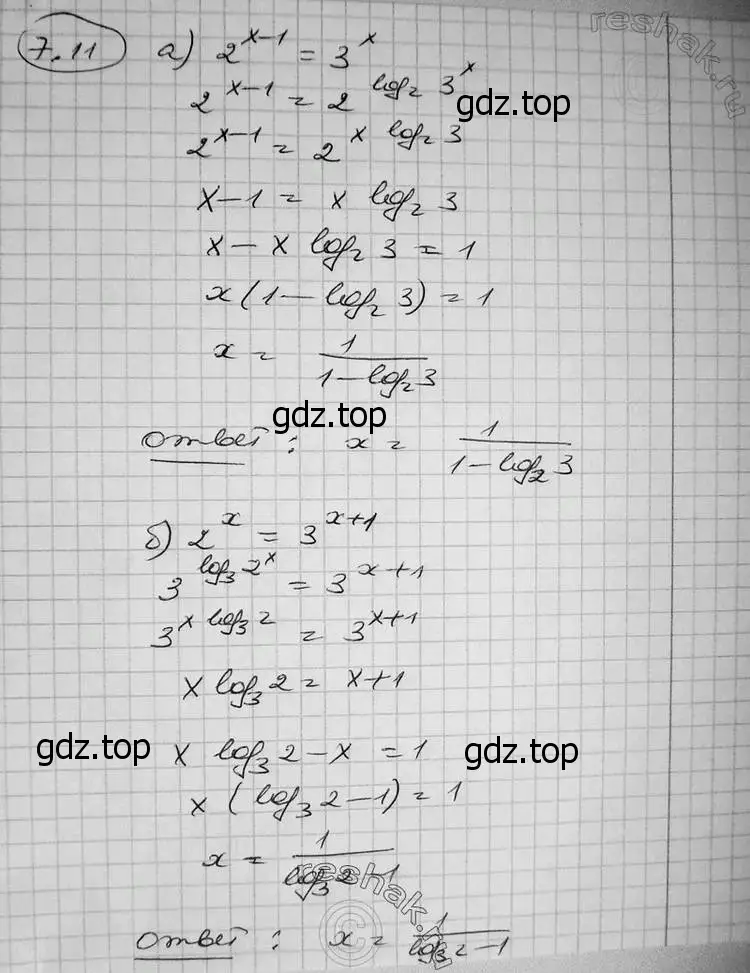 7.11 а) 2^{x-1} = 3^x
2^{x-1} = 2^{log_2 3^x}
2^{x-1} = 2^{x log_2 3}
x-1 = x log_2 3
x - x log_2 3 = 1
x(1 - log_2 3) = 1
x = 1/(1 - log_2 3)
Ответ: x = 1/(1 - log_2 3)
б) 2^x = 3^{x+1}
3^{log_3 2^x} = 3^{x+1}
3^{x log_3 2} = 3^{x+1}
x log_3 2 = x+1
x log_3 2 - x = 1
x (log_3 2 - 1) = 1
x = 1/(log_3 2 - 1)
Ответ: x = 1/(log_3 2 - 1)
reshak.ru
gdz.top
gdz.top
gdz.top
gdz.top
reshak.ru
©